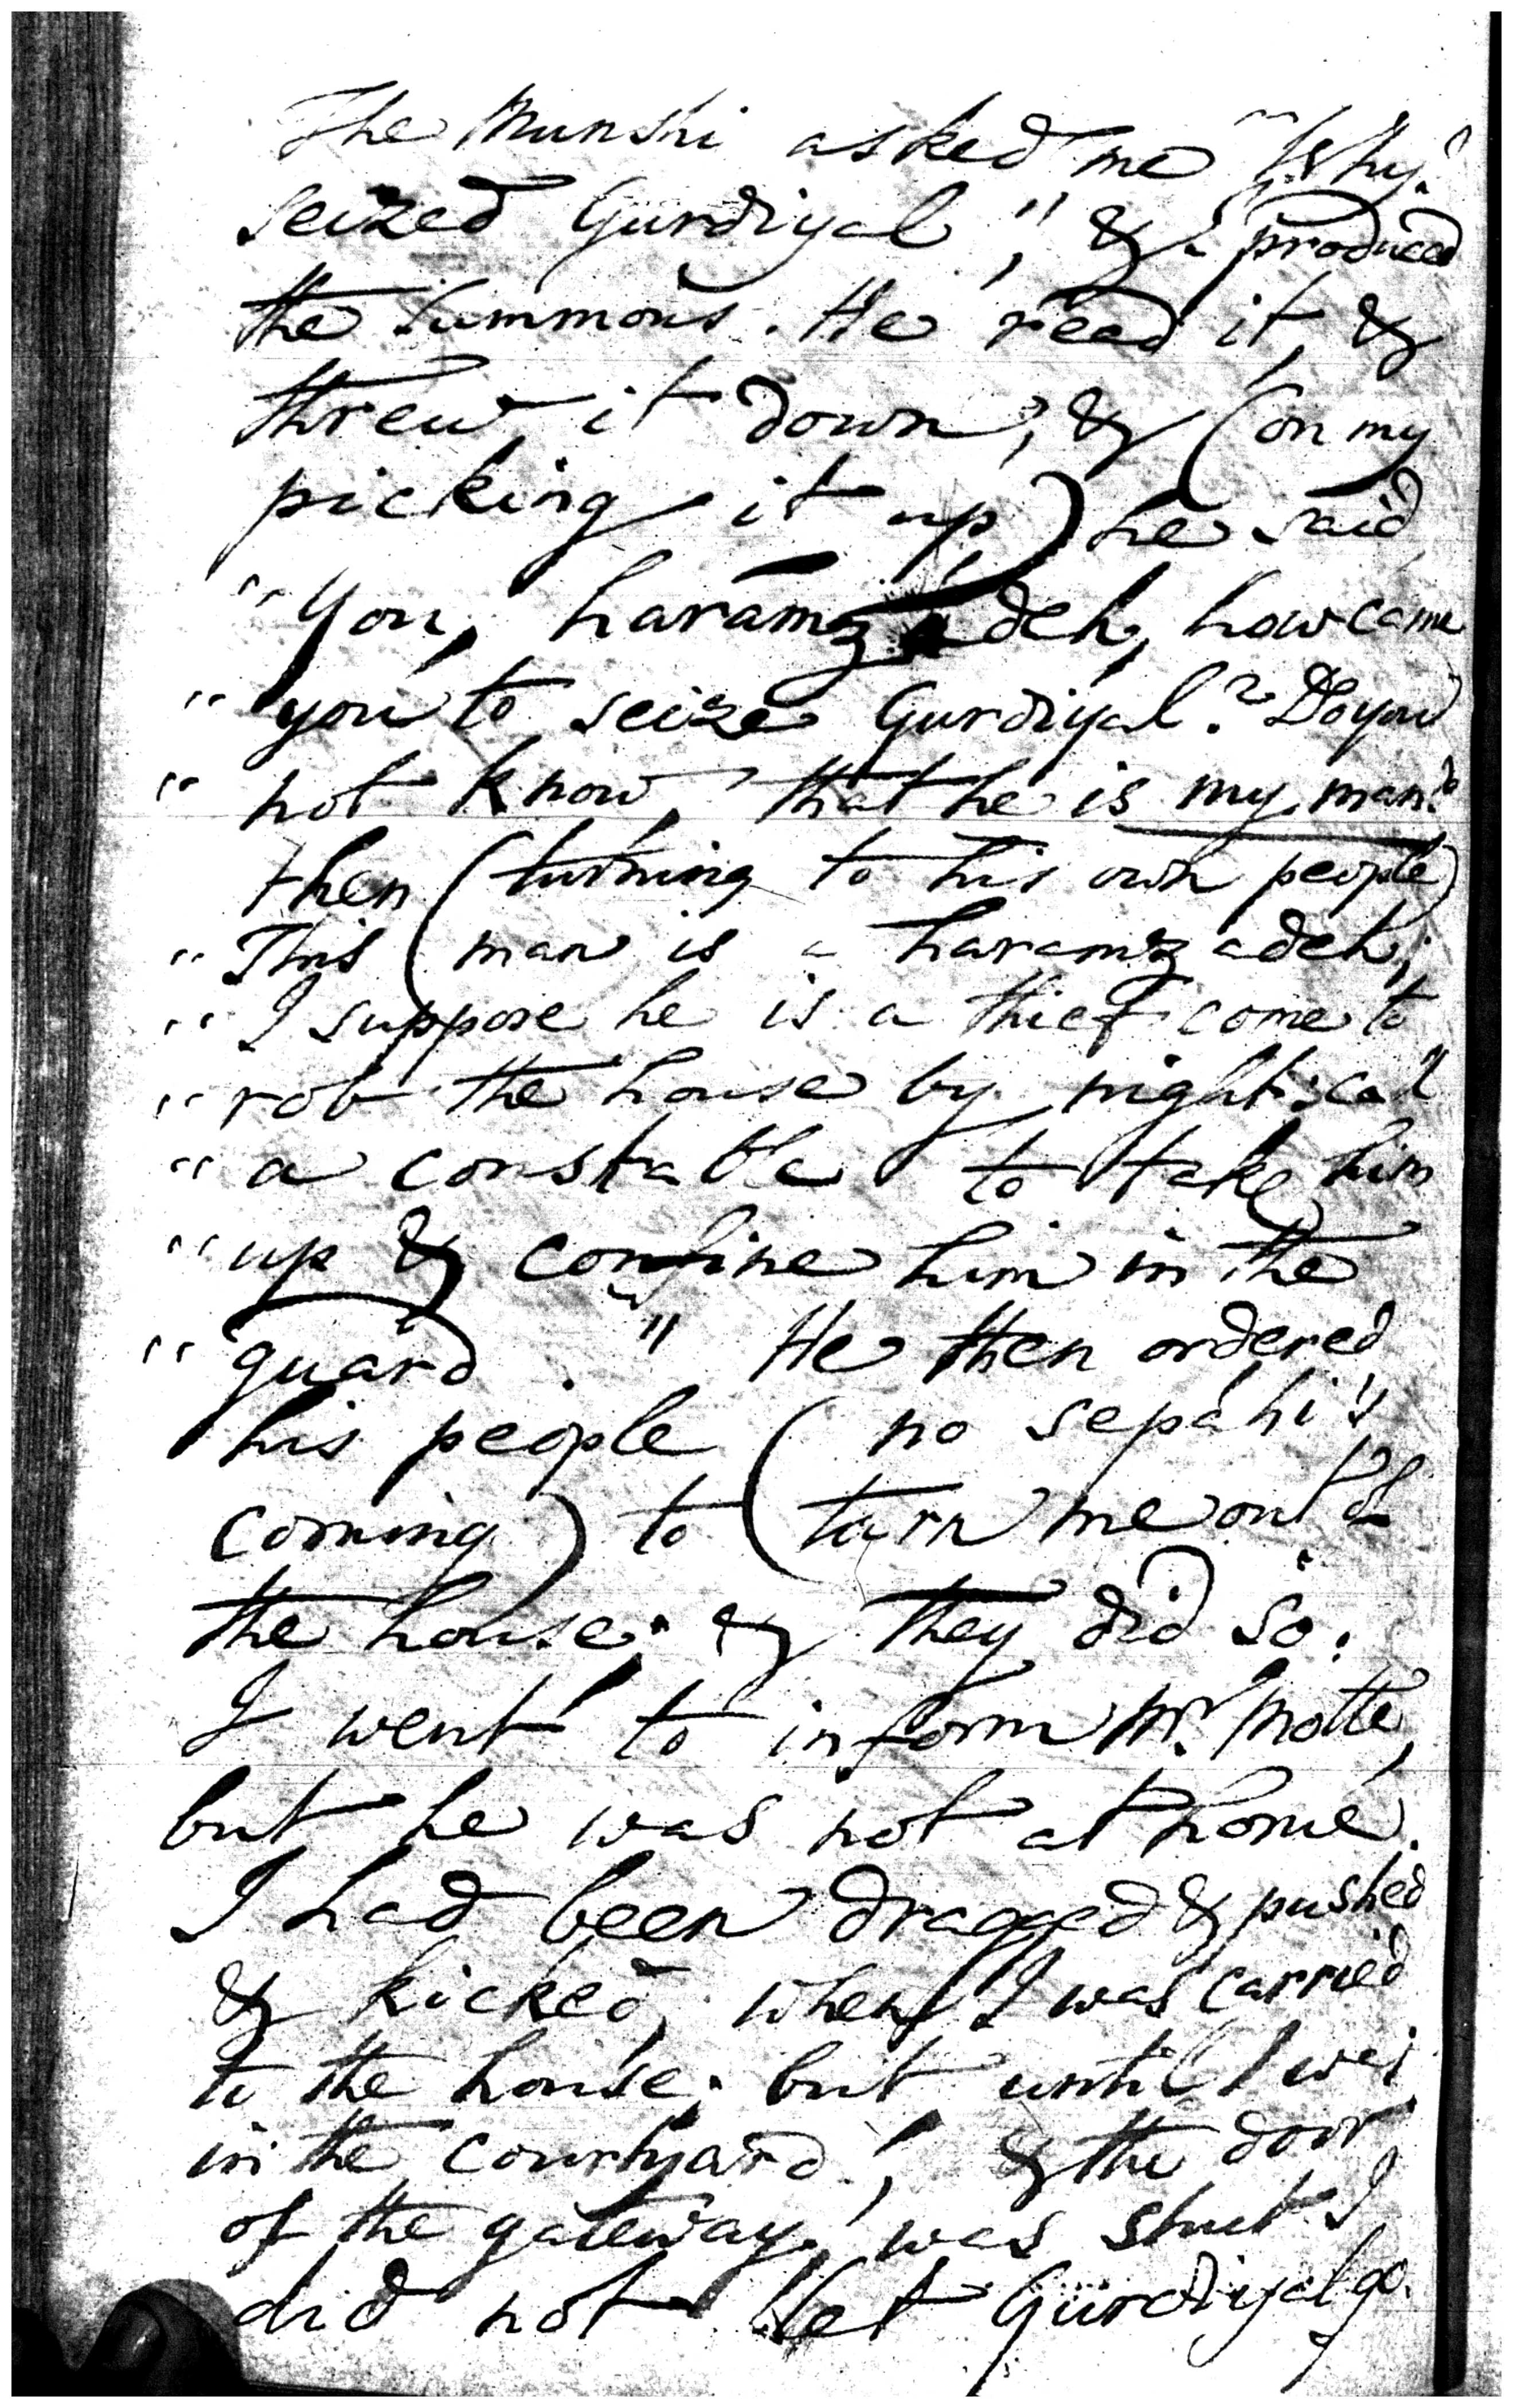 The Munshi asked me "Why I
seized Gurdiyal", & I produced
the Summons. He read it, &
threw it down, & (on my
picking it up) he said,
"You, haramzádeh, how came
"you to seize Gurdiyal? Do you
"not know, that he is my man?"
then (turning to his own people)
"This man is a haramzadeh;
"I suppose he is a thief come to
"rob the house by night: call
"a constable to take him
"up & confine him in the
"guard." He then ordered
his people (no sepáhi's
coming) to turn me out of
the house; & they did so.
I went to inform Mr. Motte,
but he was not at home.
I had been dragged & pushed
& kicked, when I was carried
to the house; but until I was
in the courtyard, & the door
of the gateway was shut I
did not let Gurdiyal go.